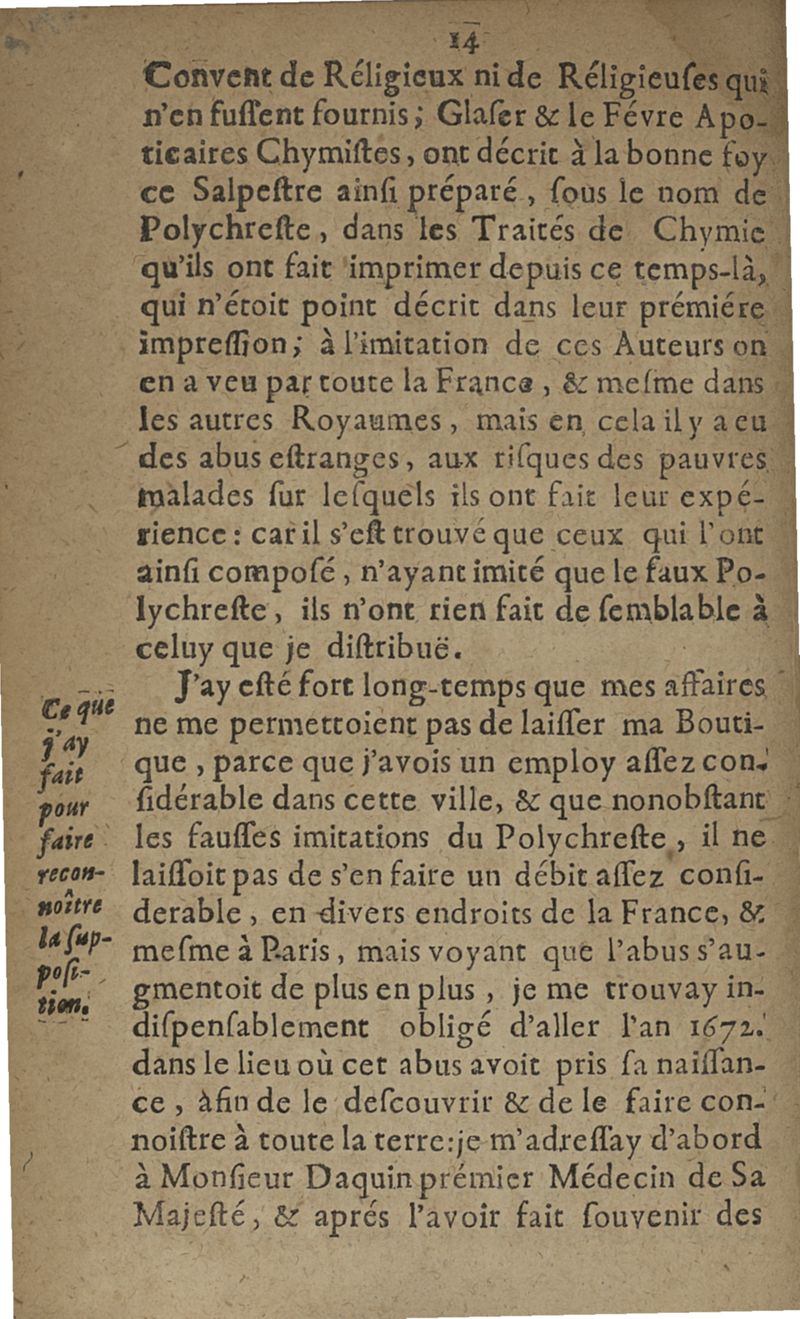 14
Convent de Réligieux ni de Réligieuſes qui
n'en fuſſent fournis; Glaſer & le Févre Apo-
ticaires Chymiſtes, ont décrit à la bonne foy
ce Salpeſtre ainſi préparé, ſous le nom de
Polychreſte, dans les Traités de Chymie
qu'ils ont fait imprimer depuis ce temps-là,
qui n'étoit point décrit dans leur prémiére
impreſſion; à l'imitation de ces Auteurs on
en a veu par toute la France, & meſme dans
les autres Royaumes, mais en cela il y a eu
des abus eſtranges, aux riſques des pauvres
malades ſur leſquels ils ont fait leur expé-
rience: car il s'eſt trouvé que ceux qui l'ont
ainſi compoſé, n'ayant imité que le faux Po-
lychreſte, ils n'ont rien fait de ſemblable à
celuy que je diſtribuë.
J'ay eſté fort long-temps que mes affaires
ne me permettoient pas de laiſſer ma Bouti-
que, parce que j'avois un employ aſſez con-
ſidérable dans cette ville, & que nonobſtant
les fauſſes imitations du Polychreſte, il ne
laiſſoit pas de s'en faire un débit aſſez conſi-
derable, en divers endroits de la France, &
meſme à Paris, mais voyant que l'abus s'au-
gmentoit de plus en plus, je me trouvay in-
diſpenſablement obligé d'aller l'an 1672.
dans le lieu où cet abus avoit pris ſa naiſſan-
ce, àfin de le deſcouvrir & de le faire con-
noiſtre à toute la terre: je m'adreſſay d'abord
à Monſieur Daquin prémier Médecin de Sa
Majeſté, & aprés l'avoir fait ſouvenir des
Ce que
j'ay
fait
pour
faire
recon-
noître
la ſup-
poſi-
tion.